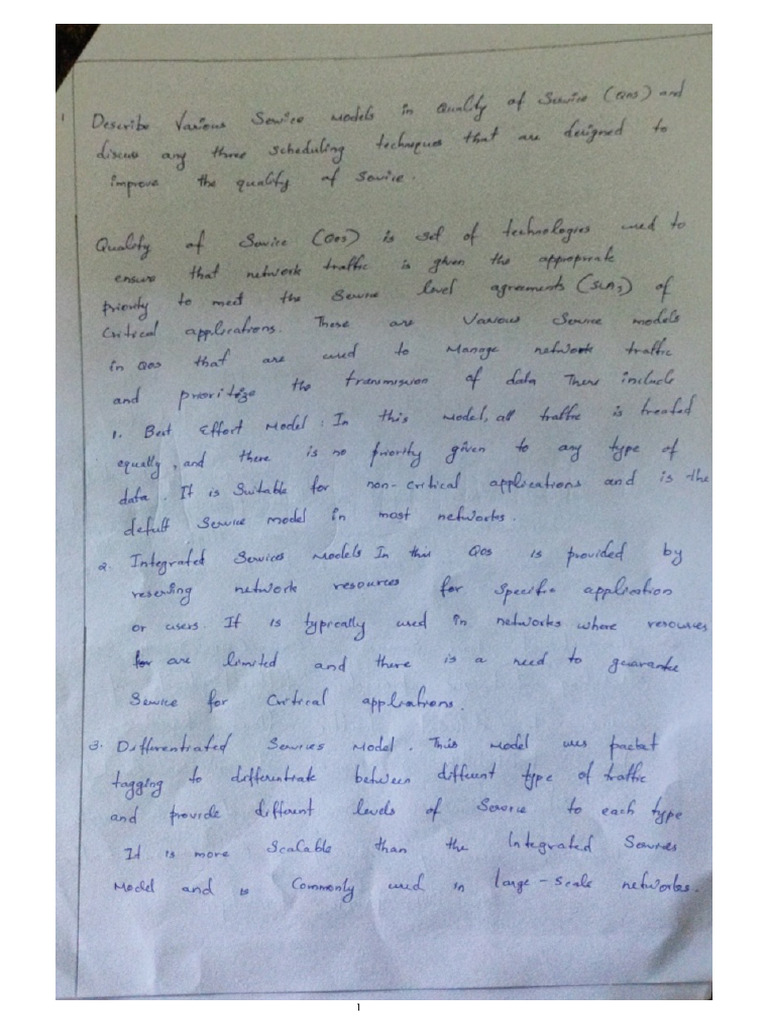 1
Describe Various Service models in Quality of Service (QoS) and
discuss any three scheduling techniques that are designed to
improve the quality of Service.
Quality of Service (QoS) is set of technologies used to
ensure that network traffic is given the appropriate
priority to meet the Service level agreements (SLAs) of
Critical applications. These are Various Service models
in QoS that are used to Manage network traffic
and prioritize the transmission of data There include
1. Best Effort Model : In this Model, all traffic is treated
equally, and there is no priority given to any type of
data. It is Suitable for non-critical applications and is the
defult Service model in most networks.
2. Integrated Services Models In this QoS is provided by
reserving network resources for Specific application
or users. It is typically used in networks where resources
for are limited and there is a need to guarantee
Service for Critical applications.
3. Differentiated Services Model. This model uses packet
tagging to differentiate between different type of traffic
and provide different levels of Service to each type
It is more Scalable than the Integrated Services
Model and is Commonly used in large-scale networks.
1